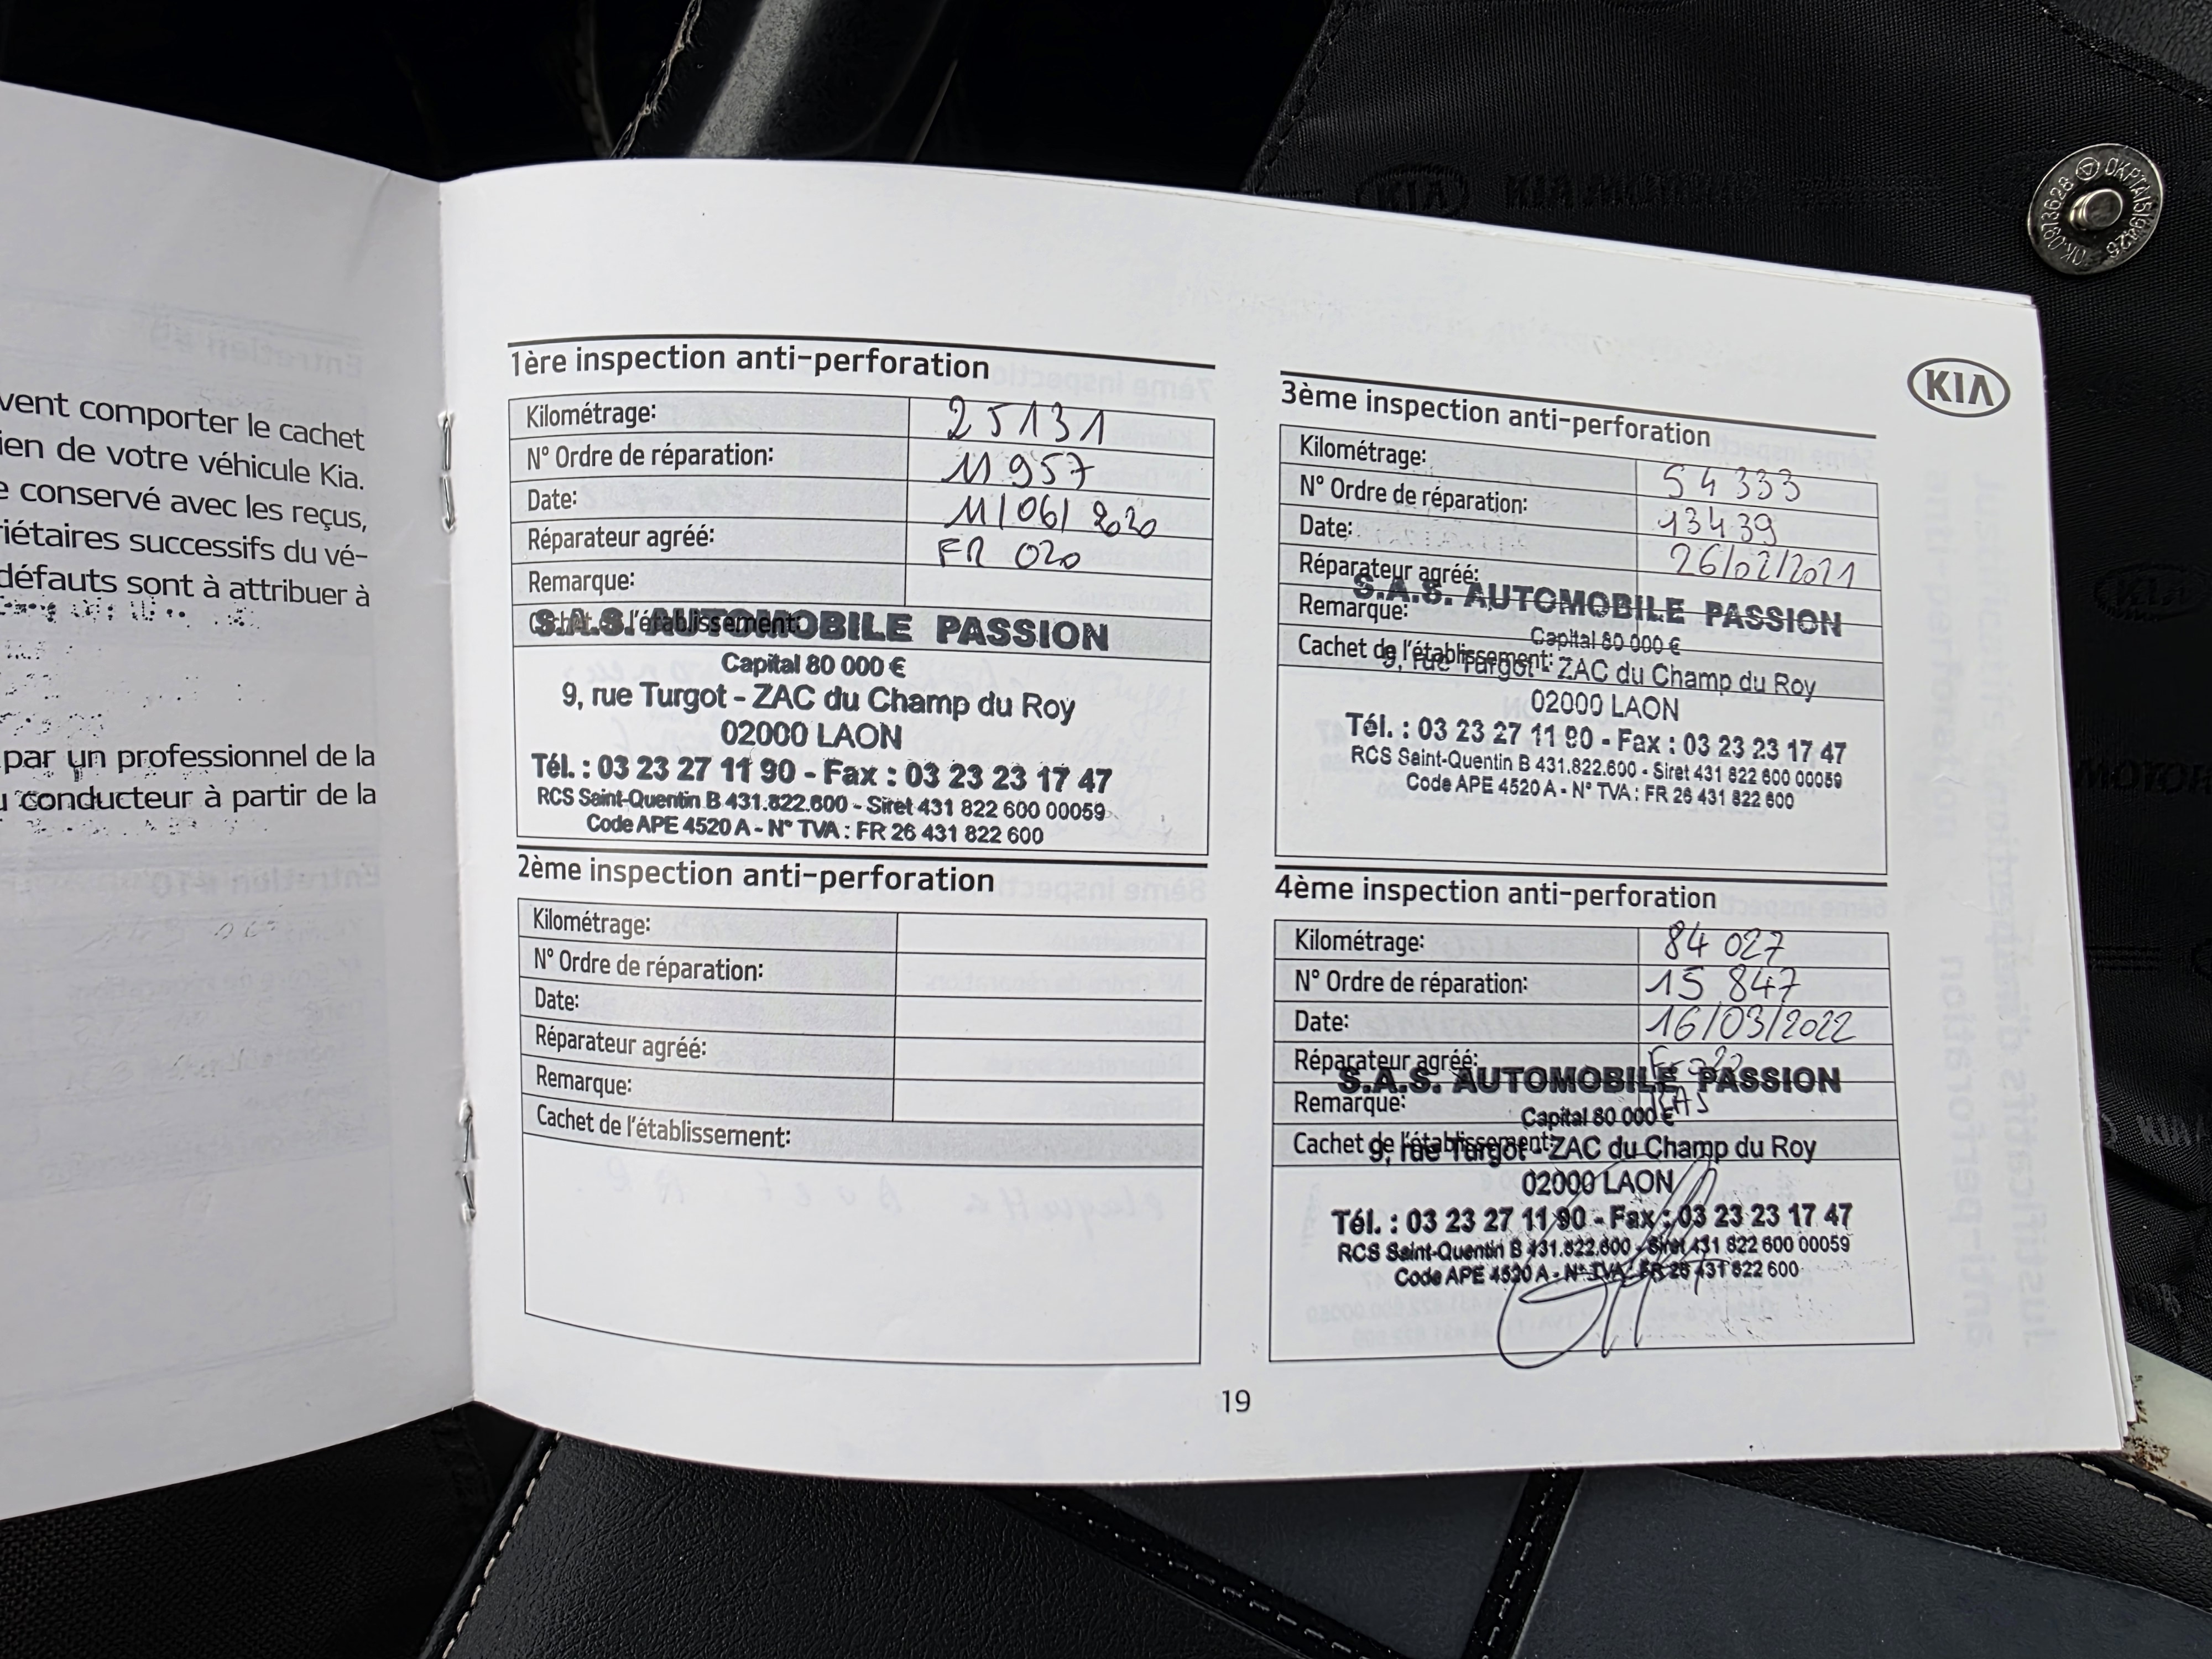 vent comporter le cachet
ien de votre véhicule Kia.
e conservé avec les reçus,
riétaires successifs du vé-
défauts sont à attribuer à
par un professionnel de la
u conducteur à partir de la
1ère inspection anti-perforation
Kilométrage: 25131
N° Ordre de réparation: 11957
Date: 11/06/2020
Réparateur agréé: FR 020
Remarque:
Cachet de l'établissement:
S.A.S. AUTOMOBILE PASSION
Capital 80 000 €
9, rue Turgot - ZAC du Champ du Roy
02000 LAON
Tél. : 03 23 27 11 90 - Fax : 03 23 23 17 47
RCS Saint-Quentin B 431.822.600 - Siret 431 822 600 00059
Code APE 4520 A - N° TVA : FR 26 431 822 600
2ème inspection anti-perforation
Kilométrage:
N° Ordre de réparation:
Date:
Réparateur agréé:
Remarque:
Cachet de l'établissement:
KIA
3ème inspection anti-perforation
Kilométrage: 54333
N° Ordre de réparation: 13439
Date: 26/02/2021
Réparateur agréé:
Remarque:
Cachet de l'établissement:
S.A.S. AUTOMOBILE PASSION
Capital 80 000 €
9, rue Turgot - ZAC du Champ du Roy
02000 LAON
Tél. : 03 23 27 11 90 - Fax : 03 23 23 17 47
RCS Saint-Quentin B 431.822.600 - Siret 431 822 600 00059
Code APE 4520 A - N° TVA : FR 26 431 822 600
4ème inspection anti-perforation
Kilométrage: 84 027
N° Ordre de réparation: 15 847
Date: 16/03/2022
Réparateur agréé:
Remarque: RAS
Cachet de l'établissement:
S.A.S. AUTOMOBILE PASSION
Capital 80 000 €
9, rue Turgot - ZAC du Champ du Roy
02000 LAON
Tél. : 03 23 27 11 90 - Fax : 03 23 23 17 47
RCS Saint-Quentin B 431.822.600 - Siret 431 822 600 00059
Code APE 4520 A - N° TVA : FR 26 431 822 600
19
KIA KIA MOTORS
KIA
MOTOR
KIA